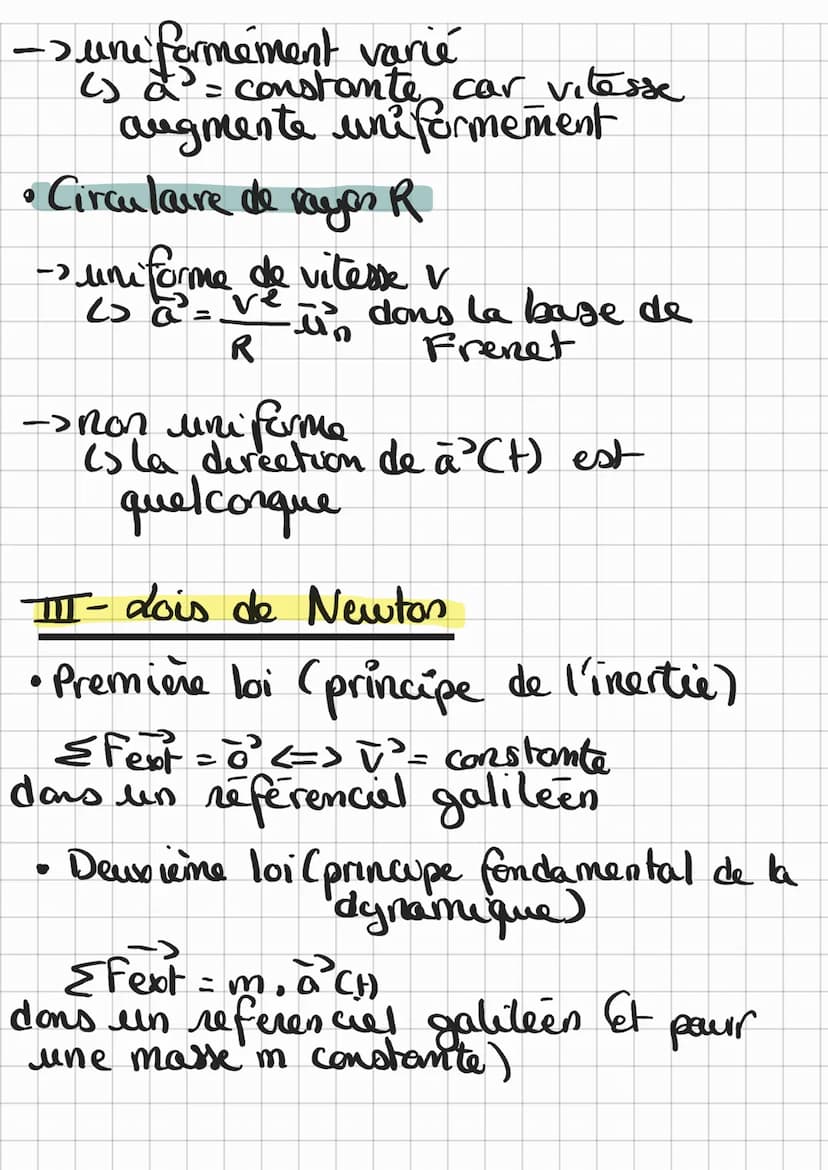 -> uniformément varié
↳ a⃗ = constante car vitesse
augmente uniformément
• Circulaire de rayon R
-> uniforme de vitesse v
↳ a⃗ = v²/R u⃗n dans la base de
Frenet
-> non uniforme
↳ la direction de a⃗(t) est
quelconque
III - Lois de Newton
• Première loi (principe de l'inertie)
ΣFext⃗ = 0⃗ <=> v⃗ = constante
dans un référenciel galiléen
• Deuxième loi (principe fondamental de la
dynamique)
ΣFext⃗ = m . a⃗(t)
dans un referenciel galiléen (et pour
une masse m constante)